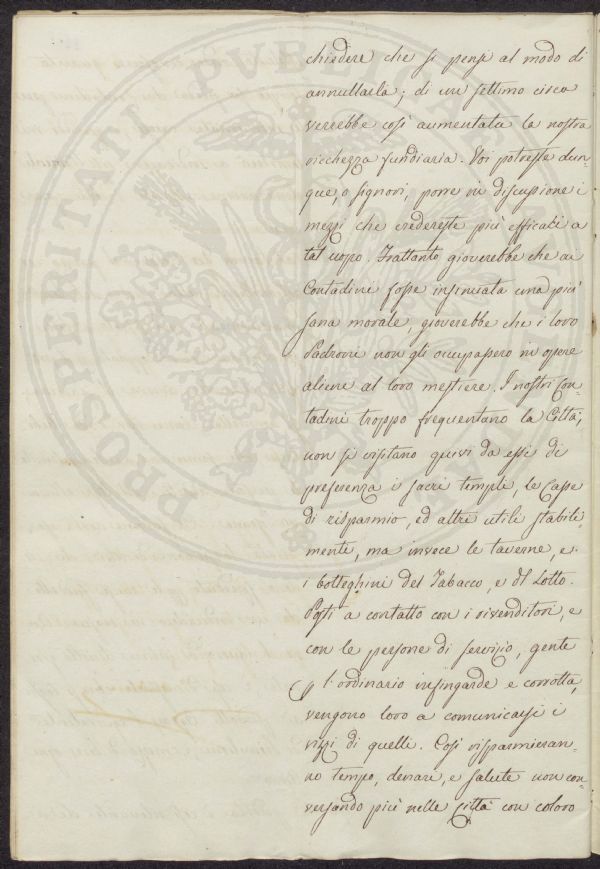 chiedere che si pensi al modo di
annullarla; di un settimo circa
verrebbe così aumentata la nostra
ricchezza fundiaria. Voi potreste dun=
que, o signori, porre in discussione i
mezzi che credereste più efficaci a
tal uopo. Frattanto gioverebbe che ai
Contadini fosse insinuata una più
sana morale, gioverebbe che i loro
Padroni non gli occupassero in opere
aliene al loro mestiere. I nostri Con=
tadini troppo frequentano la Città;
non si visitano quivi da essi di
preferenza i sacri templi, le Casse
di risparmio, ed altri utili stabili=
menti, ma invece le taverne, e
i botteghini del Tabacco, e del Lotto.
Posti a contatto con i rivenditori, e
con le persone di servizio, gente
p l'ordinario infingarde e corrotta,
vengono loro a comunicarsi i
vizzi di quelli. Così risparmieran=
no tempo, denari, e salute non con=
versando più nelle Città con coloro
PROSPERITATI PUBLICAE